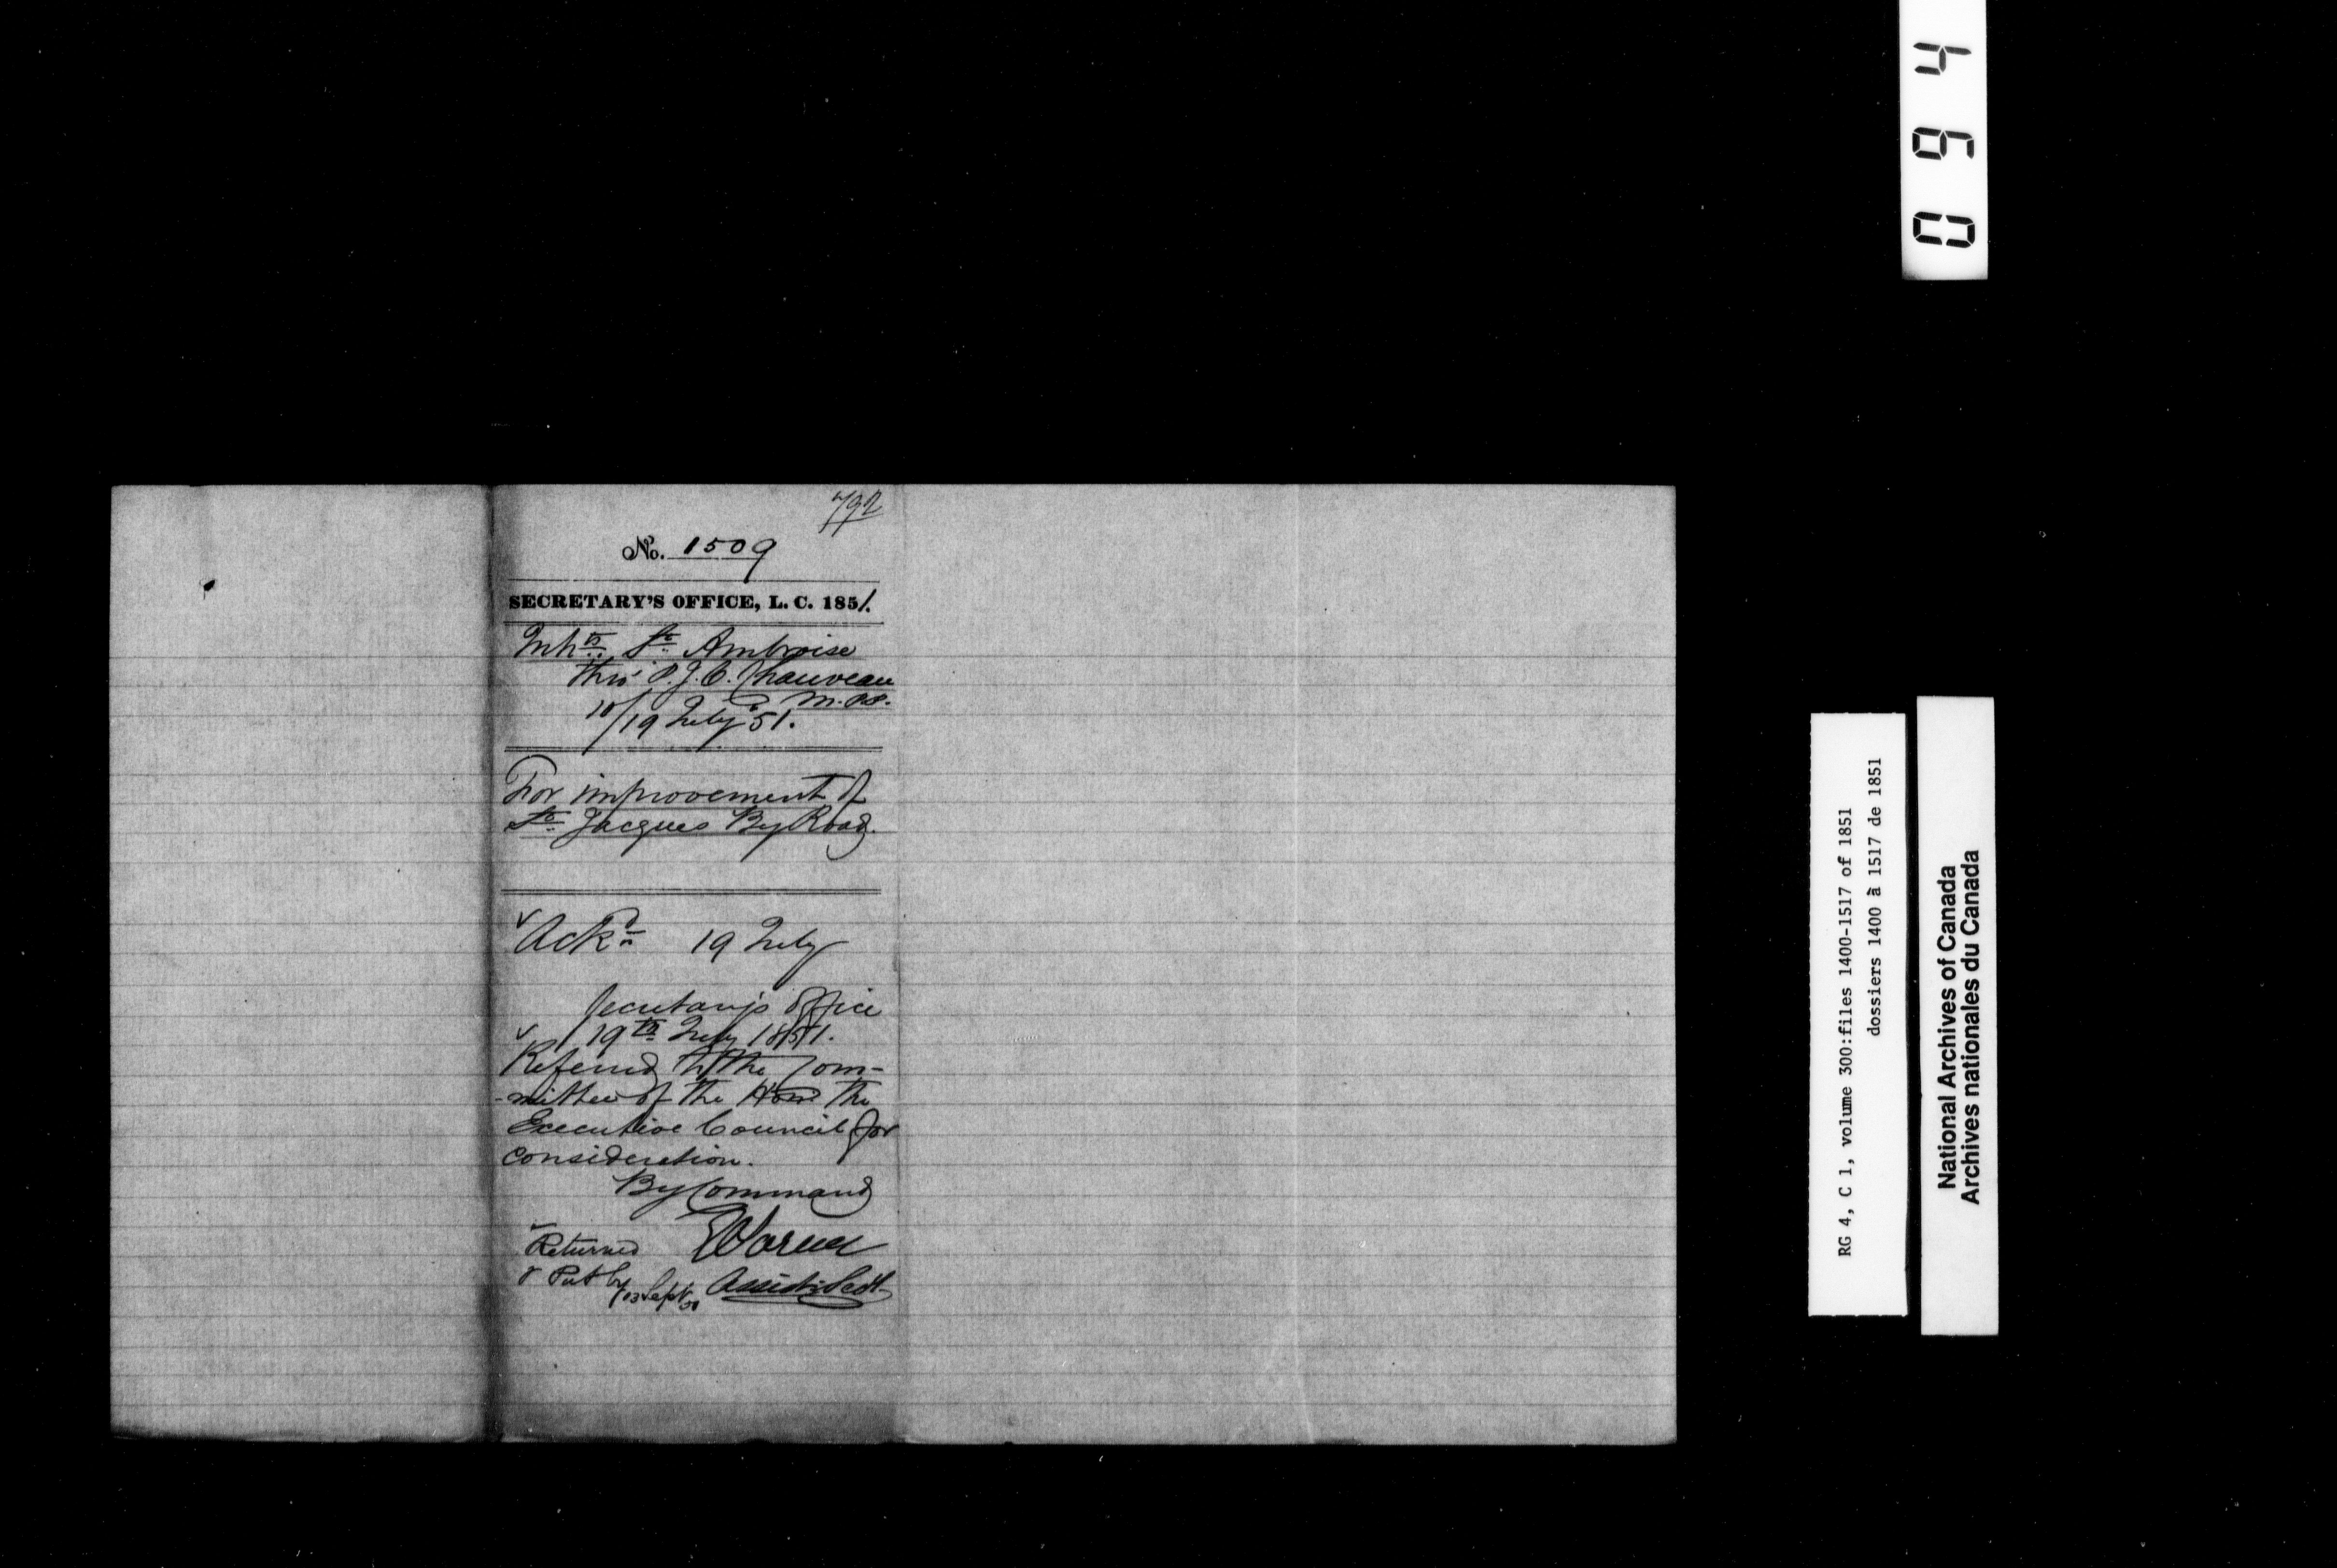 792
No. 1509
SECRETARY'S OFFICE, L. C. 1851.
Inhts. St. Ambroise
thro' P. J. O. Chauveau
M.P.P.
10/19 July 51.
For improvement of
St. Jacques By Road.
Ackd. 19 July
Secretary's Office
19th July 1851.
Referred to the Com-
-mittee of the Hon the
Executive Council for
consideration.
By Command
Returned
& Put by Assist. Secy.
0 9 4
RG 4, C 1, volume 300:files 1400-1517 of 1851
dossiers 1400 à 1517 de 1851
National Archives of Canada
Archives nationales du Canada